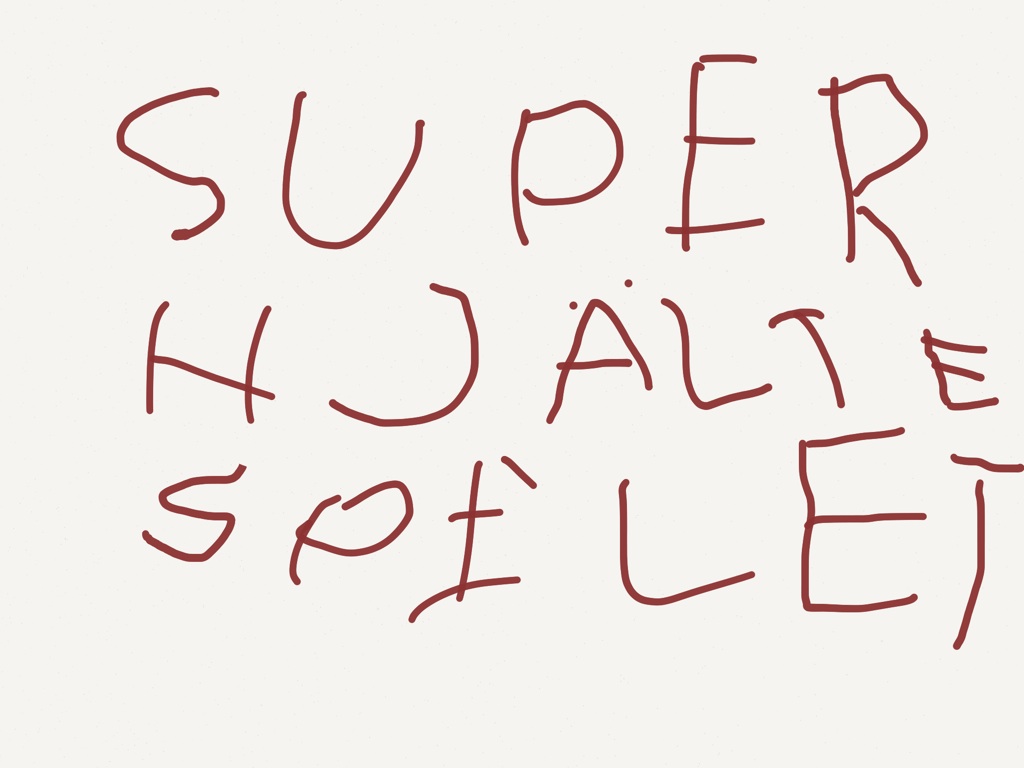 SUPER
HJÄLTE
SPELET